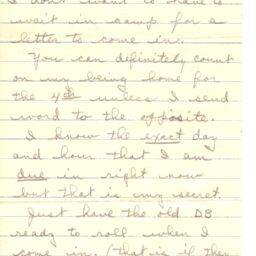 I don't want to have to
wait in camp for a
letter to come in.
You can definitely count
on my being home for
the 4th unless I send
word to the opposite.
I know the exact day
and hour that I am
due in right now
but that is my secret.
Just have the old DB
ready to roll when I
come in. (that is if they